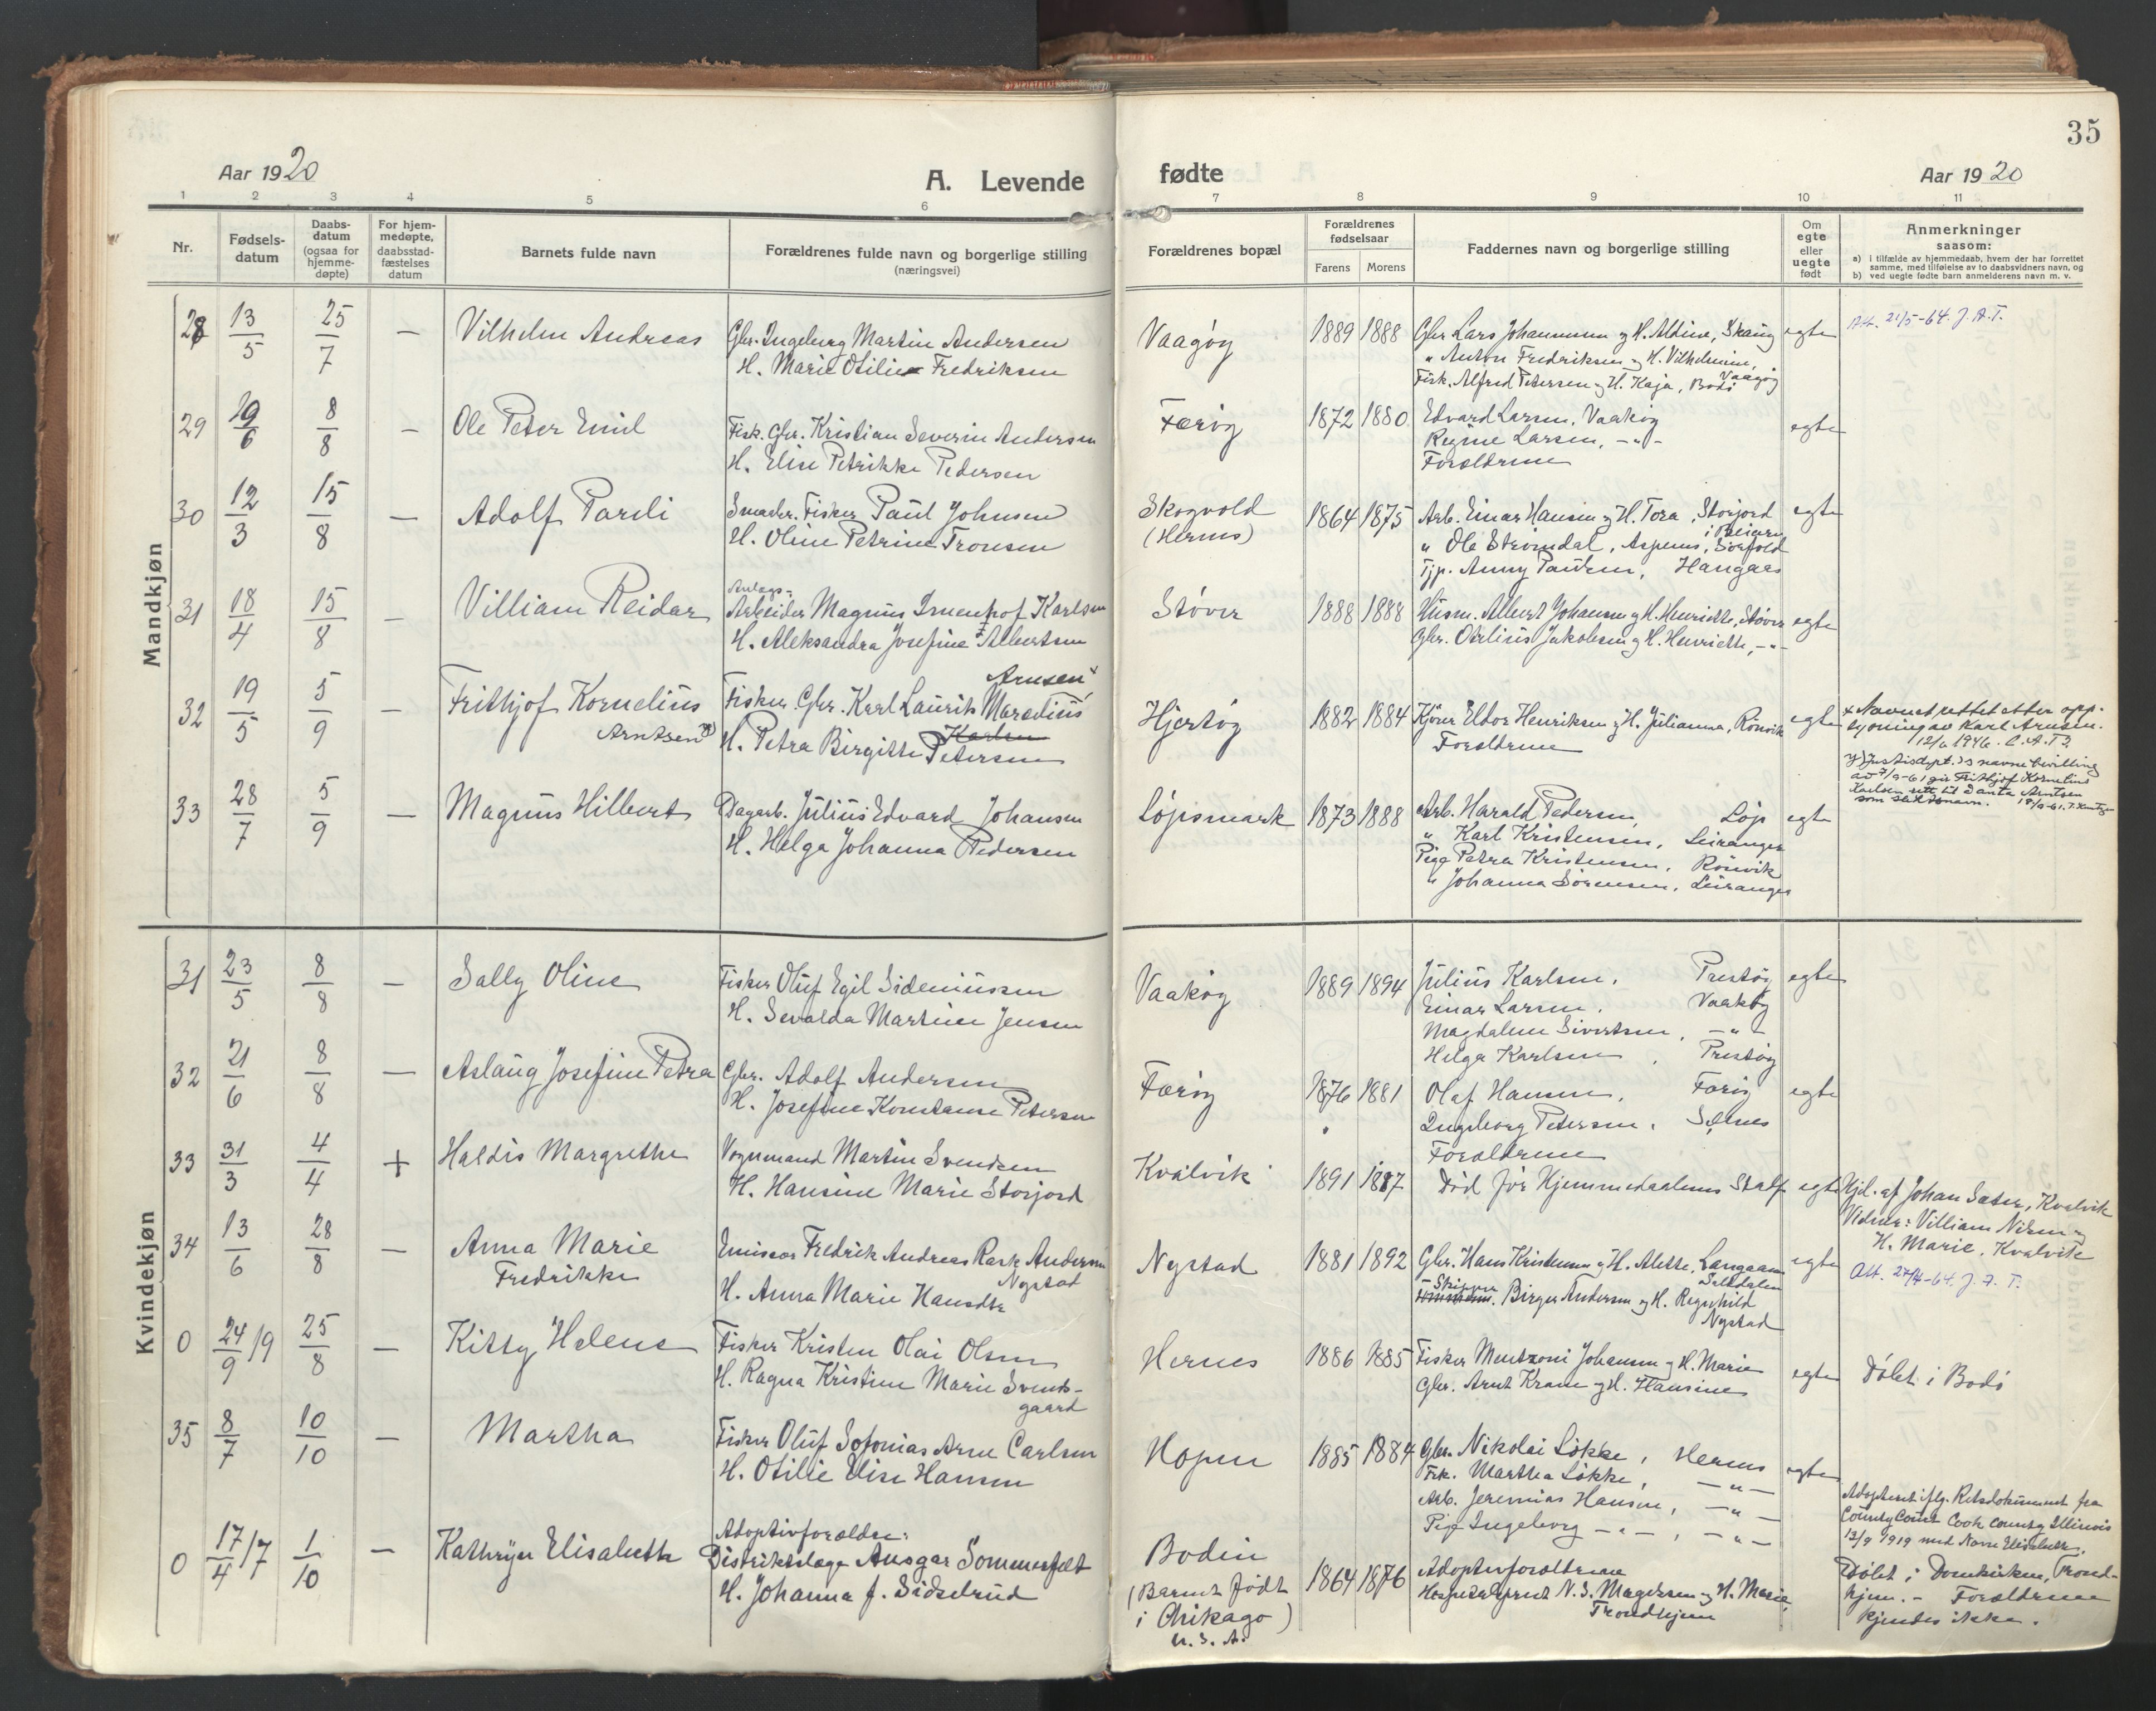 35
Aar 1920
A. Levende
fødte
Aar 1920
1 2 3 4 5 6 7 8 9 10 11
Nr.
Fødsels-
datum
Daabs-
datum
(ogsaa for
hjemme-
døpte)
For hjem-
medøpte,
daabsstad-
fæstelses
datum
Barnets fulde navn
Forældrenes fulde navn og borgerlige stilling
(næringsvei)
Forældrenes bopæl
Forældrenes
fødselsaar
Farens Morens
Faddernes navn og borgerlige stilling
Om
egte
eller
uegte
født
Anmerkninger
saasom:
a) i tilfælde av hjemmedaab, hvem der har forrettet
samme, med tilføielse av to daabsvidners navn, og
b) ved uegte fødte barn anmelderens navn m. v.
Mandkjøn
28 13/5 25/7 — Vilhelm Andreas
Gbr. Ingeberg Martin Andersen
H. Marie Otilie Fredriksen
Vaagøy 1889 1888
Gbr Lars Johannesen og H. Aldine, Skaug
" Anton Fredriksen og H. Vilhelmine,
Vaagøy
Fisk. Alfred Petersen og H. Kaja, Bodø
egte
Att. 21/5-64. J.A.T.
29 19/6 8/8 — Ole Peter Emil
Fisk. Gbr. Kristian Severin Andersen
H. Elise Petrikke Pedersen
Færøy 1872 1880
Edvard Larsen, Vaakøy
Regine Larsen, -"-
Forældrene
egte
30 12/3 15/8 — Adolf Pareli
Smaabr. Fisker Paul Johnsen
H. Oline Petrine Tronsen
Skogvold
(Hernes)
1864 1875
Arb. Einar Hansen og H. Tora, Storjord
i Beiarn
" Ole Strømdal, Aspenes, Sørfold
Tjp. Anny Paulsen, Hangaas
egte
31 18/4 15/8 — Villiam Reidar
Anlegs-
Arbeider Magnus Karlsen
H. Aleksandra Josefine Albertsen
Støver 1888 1888
Husm. Albert Johansen og H. Henriette, Støver
Gbr. Ostlius Jakobsen og H. Henriette, -"-
egte
32 19/5 5/9 — Frithjof Kornelius
Arntsen
Arnsen
Fisker Gbr. Karl Laurits Marelius
Karlsen
H. Petra Birgitte Petersen
Hjertøy 1882 1884
Kjører Eldor Henriksen og H. Julianna, Rønvik
Forældrene
egte
x Navnet rettet etter opp-
lysning av Karl Arnsen.
12/6 1946.
y) Justisdept.'s navnebevilling
av 7/9-61 gir Frithjof Kornelius
Karlsen rett til å anta Arntsen
som slektsnavn.
33 28/7 5/9 — Magnus Hilbert
Dagarb. Julius Edvard Johansen
H. Helga Johanna Pedersen
Løpsmark 1873 1888
Arb. Harald Pedersen, Løp
" Karl Kristensen, Leiranger
Pige Petra Kristensen, Rønvik
" Johanna Sørensen, Leiranger
egte
Kvindekjøn
31 23/5 8/8 — Sally Oline
Fisker Oluf Egil Sideniussen
H. Sevalda Martine Jensen
Vaakøy 1889 1894
Julius Karlsen, Prestøy
Einar Larsen, Vaakøy
Magdalene Sivertsen, -"-
Helga Karlsen, Prestøy
egte
32 21/6 8/8 — Aslaug Josefine Petra
Gbr. Adolf Andersen
H. Josefine Konstanse Petersen
Færøy 1876 1881
Olaf Hansen, Færøy
Ingeborg Petersen, Seines
Forældrene
egte
33 31/3 4/4 + Haldis Margrethe
Vognmand Martin Svendsen
H. Hansine Marie Storjord
Kvalvik 1891 1887
Død før Hjemmedaabens Stadf.
egte
Hjd. af Johan Sæter, Kvalvik
Vidner: Villiam Nilsen og
H. Marie, Kvalvik
34 13/6 28/8 — Anna Marie
Fredrikke
Emissær Fredrik Andreas Rask Andersen
Nystad
H. Anna Marie Hansdtr
Nystad 1881 1892
Gbr. Hans Kristensen og H. Alette, Langaas
Saltdalen
Skipper
Birger Andersen og H. Regnhild
Nystad
egte
Att. 27/4-64. J.A.T.
0 24/9 19 25/8 — Kitty Helene
Fisker Kristen Olai Olsen
H. Ragna Kristine Marie Svends-
gaard
Hernes 1886 1885
Fisker Mentzoni Johansen og H. Marie
Gbr. Arnt Krane og H. Hansine
egte
Døbt i Bodø
35 8/7 10/10 — Martha
Fisker Oluf Sofonias Arne Carlsen
H. Otilie Elise Hansen
Hopen 1885 1884
Gbr. Nikolai Løkke, Hernes
Frk. Martha Løkke, -"-
Arb. Jeremias Hansen, -"-
Pige Ingeborg -"-, -"-
egte
0 17/4 17 1/10 — Kathryn Elisabeth
Adoptivforældre:
Distriktslæge Ansgar Sommerfelt
H. Johanna f. Sidselrud
Bodin
(Barnet født
i Chikago)
U.S.A.
1864 1876
Adoptivforældrene
N. S. Magelssen og H. Marie,
Trondhjem
Adopteret iflg. Retsdokument fra
County Court Cook county Illinois
12/9 1919 med Navn Elisabeth.
Døbt i Domkirken, Trond-
hjem. - Forældrene
kjendes ikke.